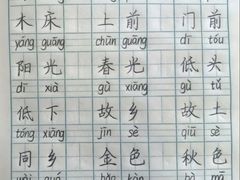 木床 上前 门前
yáng guāng chūn guāng dī tóu
阳光 春光 低头
dī xià gù xiāng gù tǔ
低下 故乡 故土
tóng xiāng jīn sè qiū sè
同乡 金色 秋色